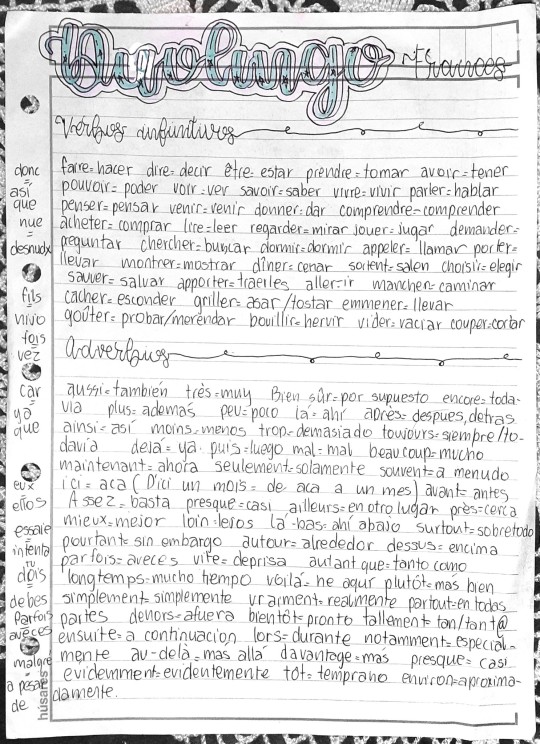 Duolingo
~ Francés
Verbos infinitivos
faire=hacer dire=decir être=estar prendre=tomar avoir=tener
pouvoir=poder voir=ver savoir=saber vivre=vivir parler=hablar
penser=pensar venir=venir donner=dar comprendre=comprender
acheter=comprar lire=leer regarder=mirar jouer=jugar demander=
preguntar chercher=buscar dormir=dormir appeler=llamar porter=
llevar montrer=mostrar dîner=cenar sortent=salen choisir=elegir
sauver=salvar apporter=traerles aller=ir marcher=caminar
cacher=esconder griller=asar/tostar emmener=llevar
goûter=probar/merendar bouillir=hervir vider=vaciar couper=cortar
Adverbios
aussi=también très=muy Bien sûr=por supuesto encore=toda-
vía plus=además peu=poco là=ahí après=despues,detras
ainsi=así moins=menos trop=demasiado toujours=siempre/to-
davía dejá=ya puis=luego mal=mal beaucoup=mucho
maintenant=ahora seulement=solamente souvent=a menudo
ici=aca (D'ici un mois=de aca a un mes) avant=antes
Assez=basta presque=casi ailleurs=en otro lugar près=cerca
mieux=mejor loin=lejos là-bas=ahí abajo surtout=sobretodo
pourtant=sin embargo autour=alrededor dessus=encima
parfois=aveces vite=deprisa autant que=tanto como
longtemps=mucho tiempo voilà=he aquí plutôt=más bien
simplement=simplemente vraiment=realmente partout=en todas
partes dehors=afuera bientôt=pronto tallement=tan/tant@
ensuite=a continuacion lors=durante notamment=especial-
mente au-delà=mas allá davantage=más presque=casi
evidemment=evidentemente tôt=temprano environ=aproxima-
damente.
donc
=
así
que
nue
=
desnudx
fils
=
hijo
fois
=
vez
car
=
ya
que
eux
=
ellos
essaie
=
intenta
tu
dois
=
debes
Parfois
=
aveces
malgré
=
a pesar
de
húsares